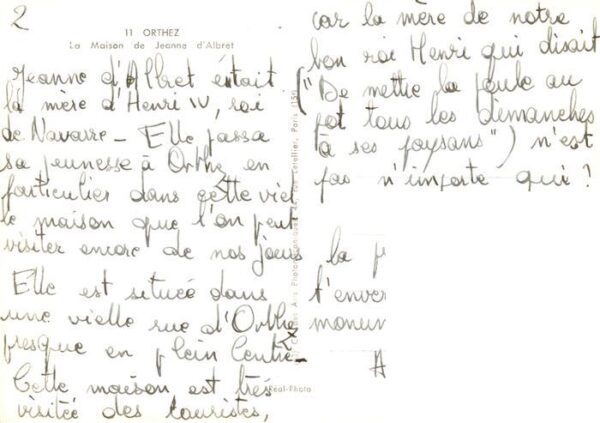 2
11 ORTHEZ
La Maison de Jeanne d'Albret
Jeanne d'Albret était
la mère d'Henri IV, roi
de Navarre - Elle passa
sa jeunesse à Orthez en
particulier dans cette viel
le maison que l'on peut
visiter encore de nos jours
Elle est située dans
une vielle rue d'Orthez
presque en plein Centre
Cette maison est très
visitée des touristes,
car la mère de notre
bon roi Henri qui disait
("De mettre la poule au
pot tous les dimanches
à ses paysans") n'est
pas n'importe qui ?
la
t'enver
monum
A
Réal-Photo